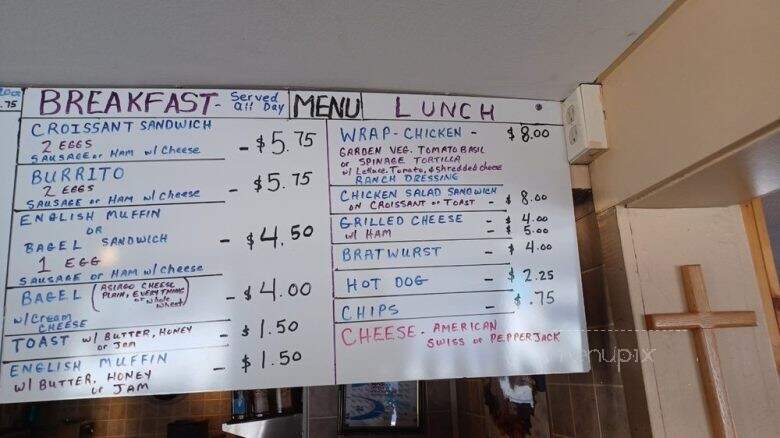 .75
BREAKFAST- Served All Day
CROISSANT SANDWICH
2 EGGS - $5.75
SAUSAGE or HAM w/ Cheese
BURRITO
2 EGGS - $5.75
SAUSAGE or HAM w/ Cheese
ENGLISH MUFFIN
OR
BAGEL SANDWICH - $4.50
1 EGG
SAUSAGE or HAM w/ Cheese
BAGEL (ASIAGO CHEESE PLAIN, EVERYTHING or whole wheat) - $4.00
w/ Cream CHEESE
TOAST w/ BUTTER, HONEY or JAM - $1.50
ENGLISH MUFFIN - $1.50
w/ BUTTER, HONEY
or JAM
MENU
LUNCH
WRAP - CHICKEN - $8.00
GARDEN VEG. TOMATO BASIL
or SPINAGE TORTILLA
w/ Lettuce, Tomato, & shredded cheese
RANCH DRESSING
CHICKEN SALAD SANDWICH
ON CROISSANT or TOAST - $8.00
GRILLED CHEESE - $4.00
w/ HAM - $5.00
BRATWURST - $4.00
HOT DOG - $2.25
CHIPS - $.75
CHEESE - AMERICAN
SWISS or PEPPERJACK
menupix